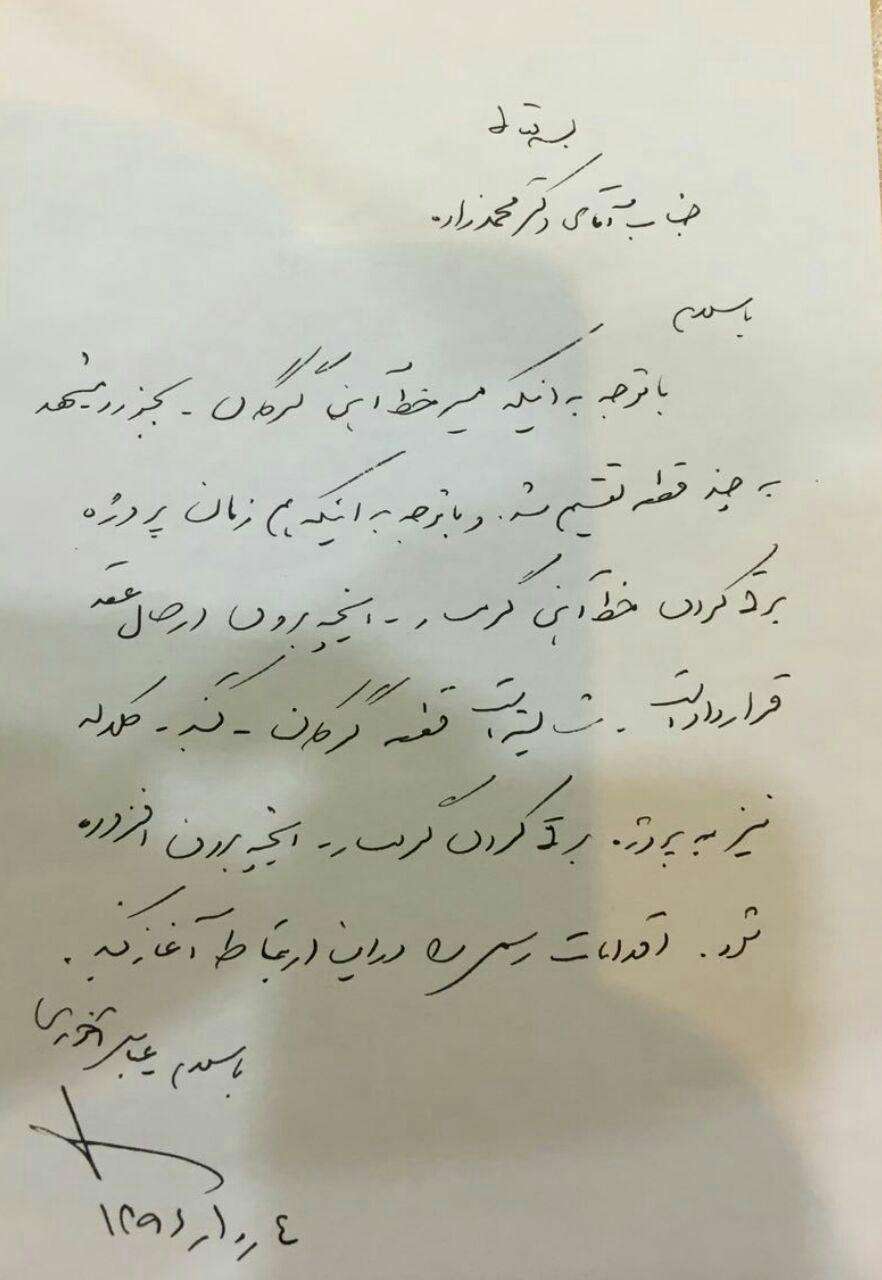 بسمه تعالی
جناب آقای دکتر محمدزاده
باسلام
با توجه به اینکه مسیر خط آهن گرگان - بجنورد - مشهد
به چند قطعه تقسیم شد. و با توجه به اینکه هم زمان پروژه
برقی کردن خط آهن گرمسار - اینچه برون در حال عقد
قرارداد است. شایسته است قطعه گرگان - گنبد - کلاله
نیز به پروژه برقی کردن گرمسار - اینچه برون افزوده
شود. اقدامات رسمی را در این ارتباط آغاز کنید.
باسلام عباس آخوندی